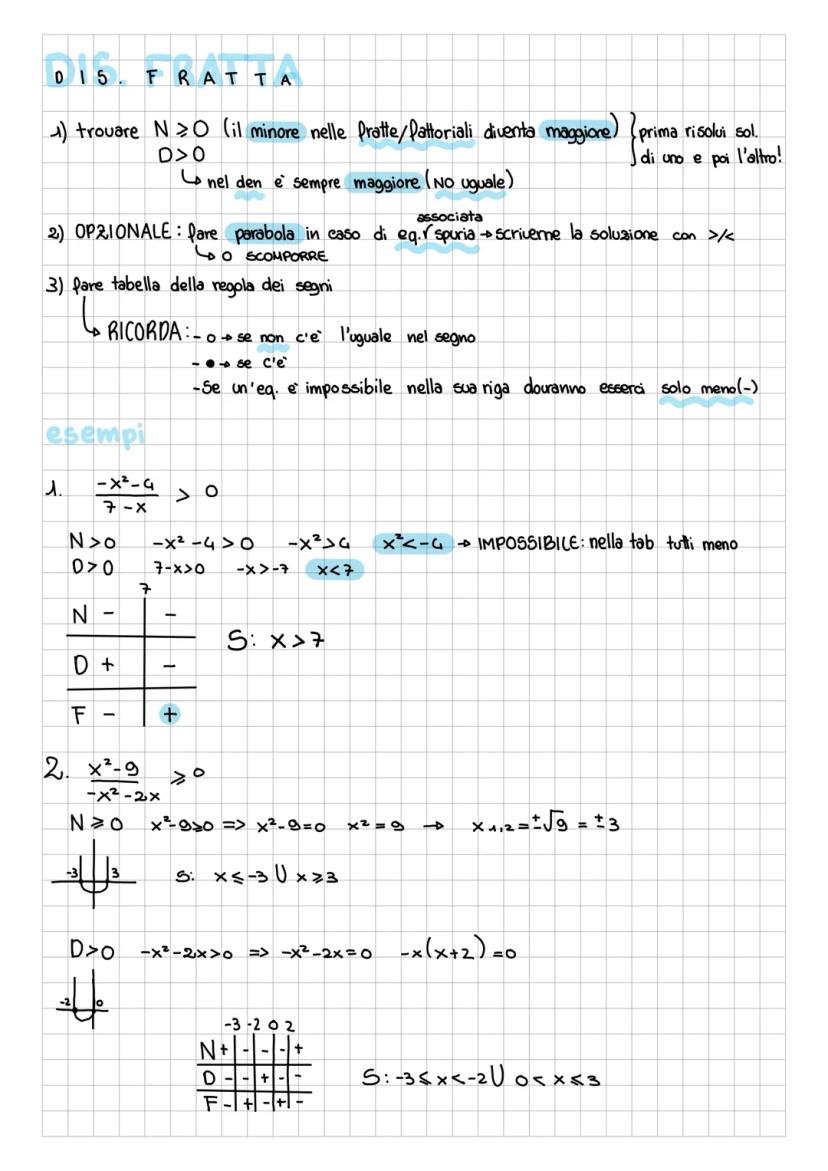 DIS. FRATTA
DIS. FRATTA
1) trovare N ⩾ 0 (il minore nelle fratte/fattoriali diventa maggiore) } prima risolvi sol.
D > 0 di uno e poi l'altro!
↳ nel den è sempre maggiore (NO uguale)
associata
2) OPZIONALE: fare parabola in caso di eq. spuria → scriverne la soluzione con >/<
↳ O SCOMPORRE
3) fare tabella della regola dei segni
↳ RICORDA: - o → se non c'è l'uguale nel segno
- ● → se c'è
- Se un'eq. è impossibile nella sua riga dovranno esserci solo meno (-)
esempi
1. (-x²-4)/(7-x) > 0
N > 0 -x²-4 > 0 -x² > 4 x² < -4 → IMPOSSIBILE: nella tab tutti meno
D > 0 7-x > 0 -x > -7 x < 7
7
N - | -
S: x > 7
D + | -
F - | +
2. (x²-9)/(-x²-2x) ⩾ 0
N ⩾ 0 x²-9⩾0 => x²-9=0 x²=9 → x₁,₂=±√9 = ±3
-3 3 S: x ⩽ -3 ∪ x ⩾ 3
D > 0 -x²-2x>0 => -x²-2x=0 -x(x+2)=0
-2 0
-3 -2 0 2
N + | - | - | - | +
D - | - | + | - | - S: -3 ⩽ x < -2 ∪ 0 < x ⩽ 3
F - | + | - | + | -